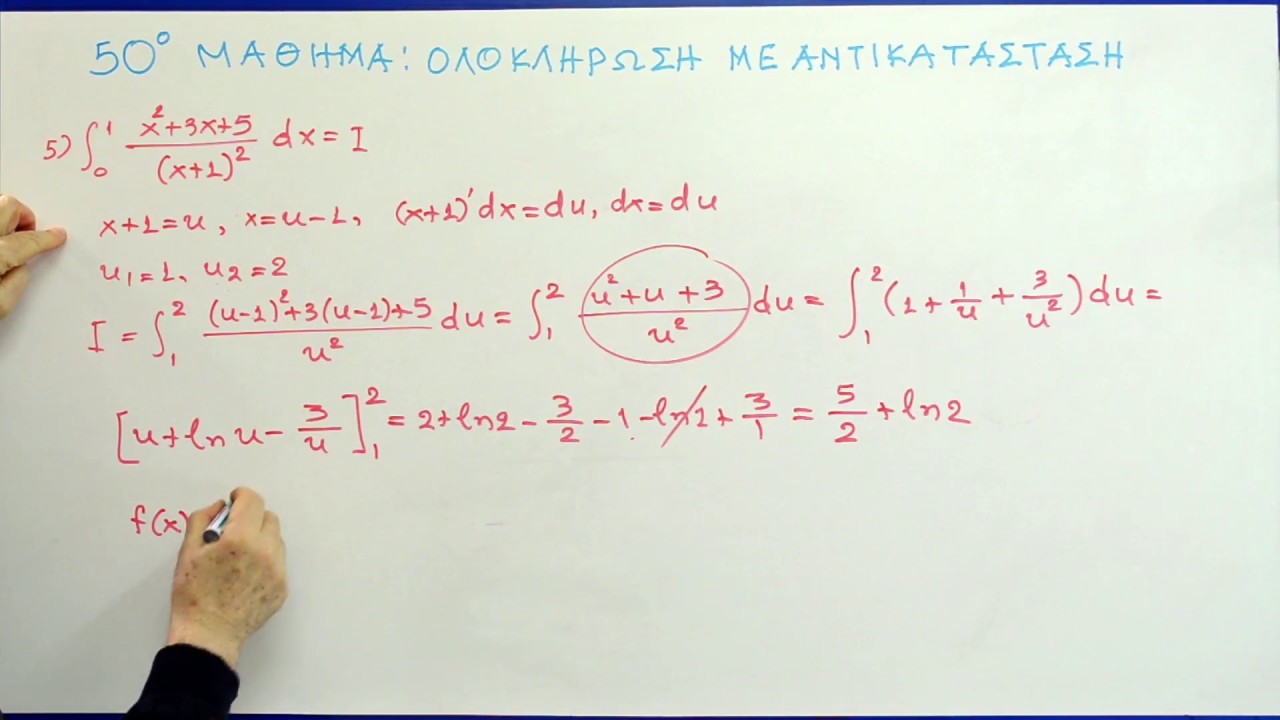 50° ΜΑΘΗΜΑ: ΟΛΟΚΛΗΡΩΣΗ ΜΕ ΑΝΤΙΚΑΤΑΣΤΑΣΗ
5) ∫₀¹ (x²+3x+5)/(x+1)² dx = I
x+1=u, x=u-1, (x+1)'dx=du, dx=du
u₁=1, u₂=2
I = ∫₁² ((u-1)²+3(u-1)+5)/u² du = ∫₁² (u²+u+3)/u² du = ∫₁² (1 + 1/u + 3/u²) du =
[u+ln u - 3/u]₁² = 2+ln2 - 3/2 - 1 - ln1 + 3/1 = 5/2 + ln2
f(x)